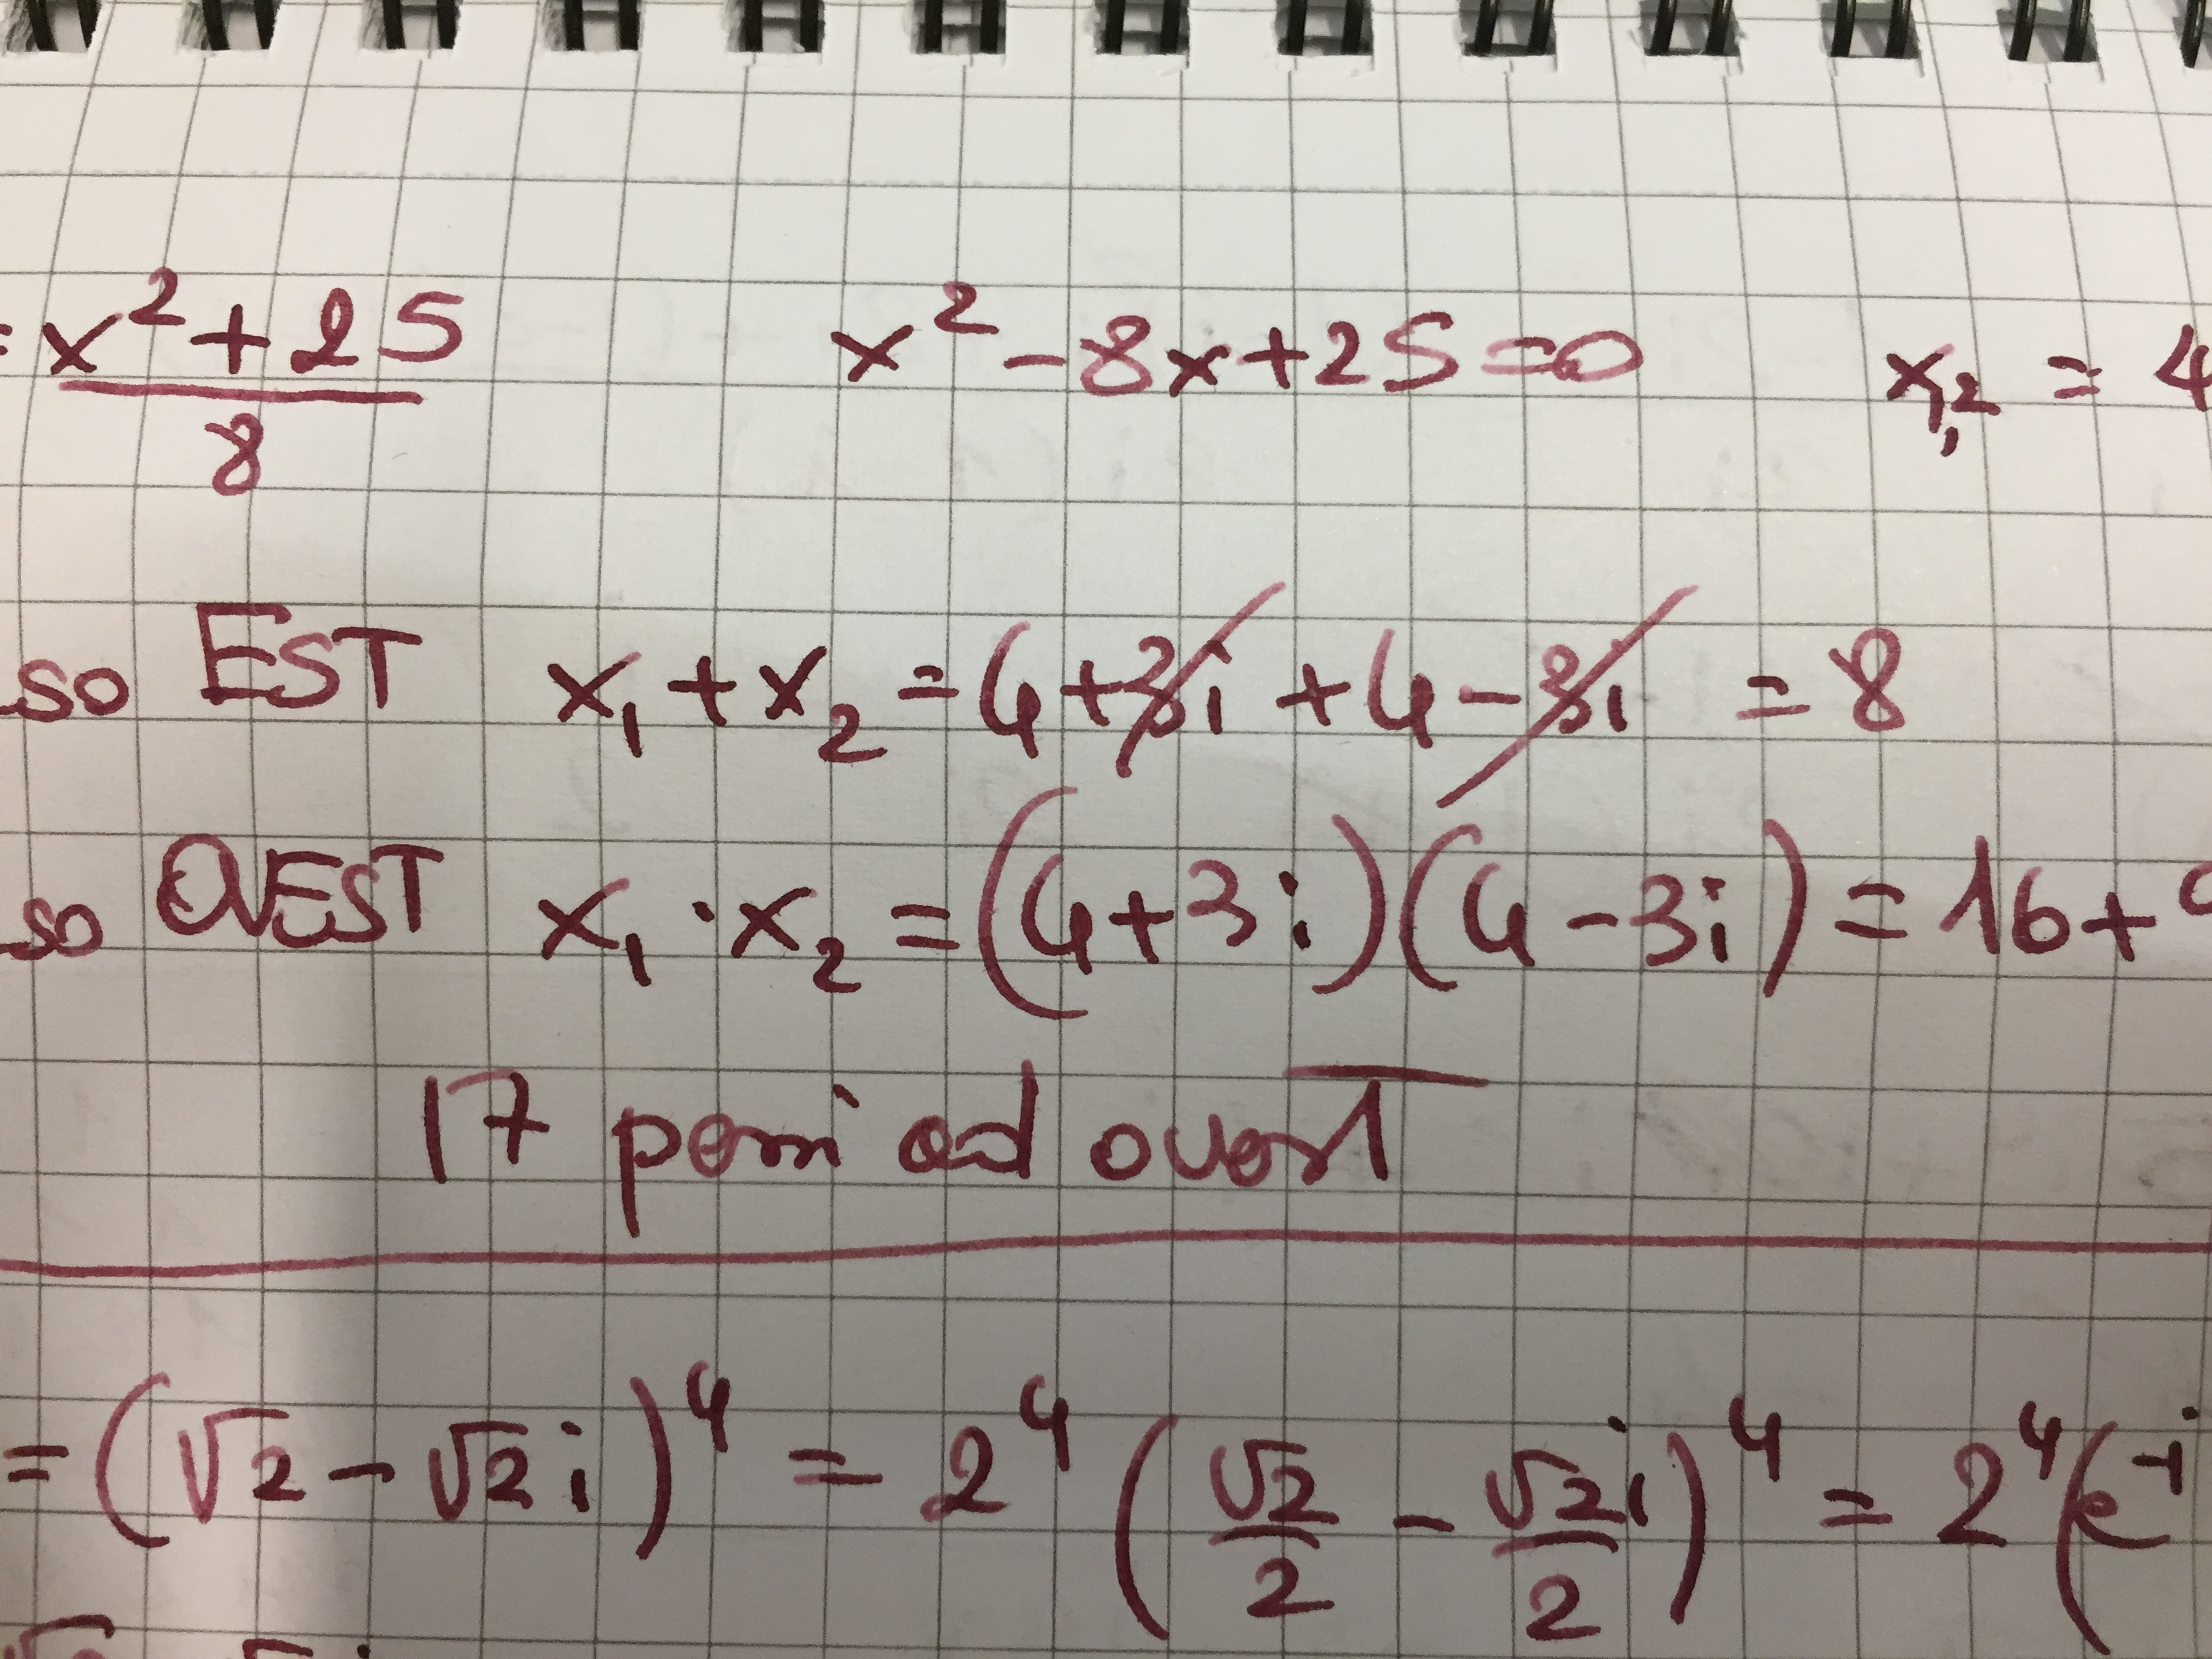 = x² + 25 / 8    x² - 8x + 25 = 0    x₁,₂ = 4
so EST x₁ + x₂ = 4 + 3i + 4 - 3i = 8
so OVEST x₁ · x₂ = (4 + 3i)(4 - 3i) = 16 +
17 passi ad ovest
= (√2 - √2 i)⁴ = 2⁴ (√2/2 - √2/2 i)⁴ = 2⁴(e⁻ⁱ